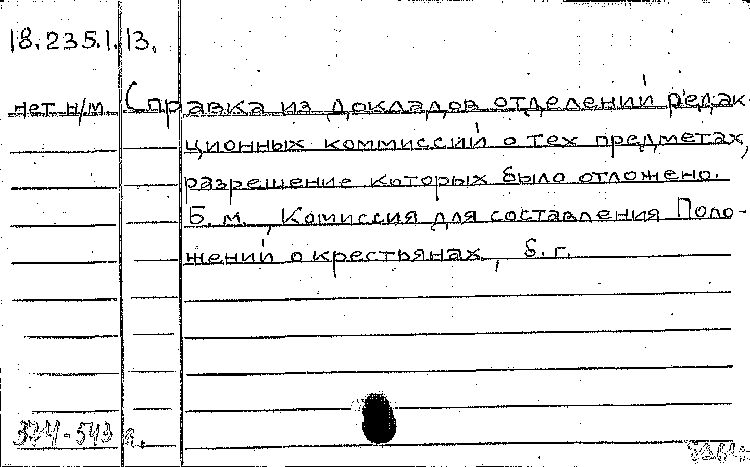 18.235.1.13.
нет н/м. Справка из докладов отделений редак-
ционных коммиссий о тех предметах,
разрешение которых было отложено.
Б. м., Комиссия для составления Поло-
жений о крестьянах, б. г.
374-543 л.